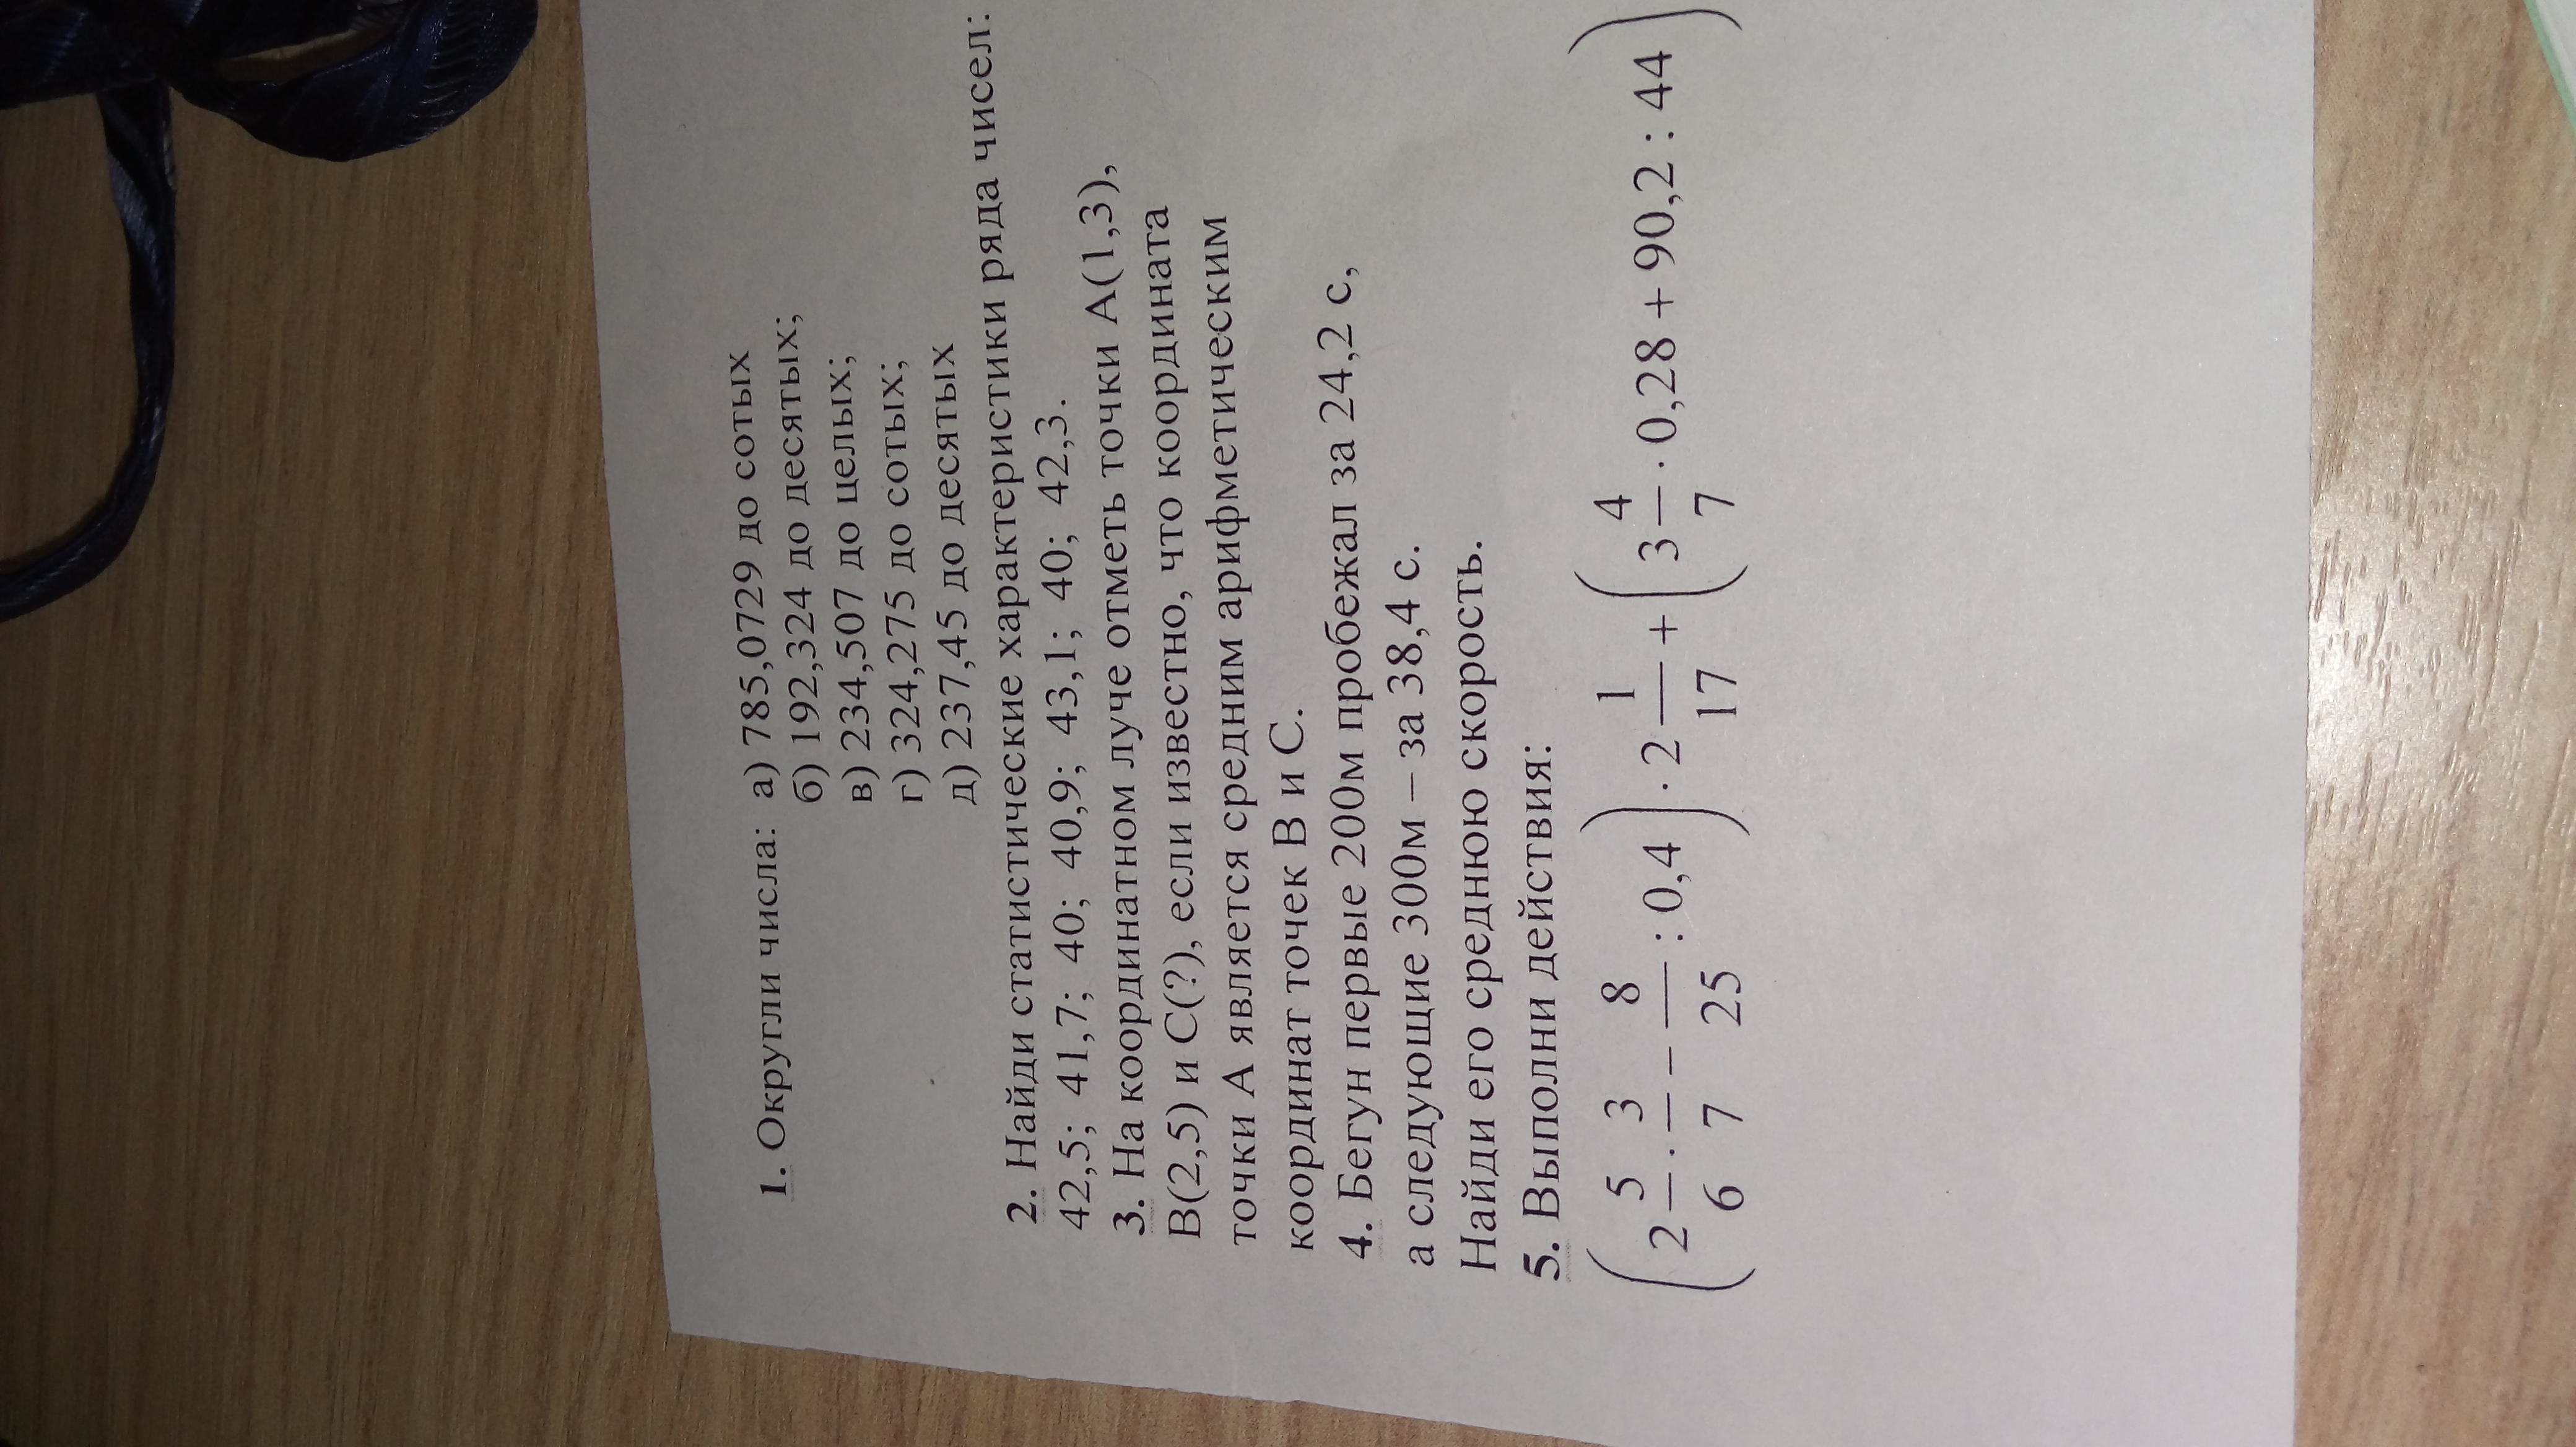 1. Округли числа: а) 785,0729 до сотых
б) 192,324 до десятых;
в) 234,507 до целых;
г) 324,275 до сотых;
д) 237,45 до десятых
2. Найди статистические характеристики ряда чисел:
42,5; 41,7; 40; 40,9; 43,1; 40; 42,3.
3. На координатном луче отметь точки А(1,3),
В(2,5) и С(?), если известно, что координата
точки А является средним арифметическим
координат точек В и С.
4. Бегун первые 200м пробежал за 24,2 с,
а следующие 300м – за 38,4 с.
Найди его среднюю скорость.
5. Выполни действия:
(2 5/6 · 3/7 − 8/25 : 0,4) · 2 1/17 + (3 4/7 · 0,28 + 90,2 : 44)